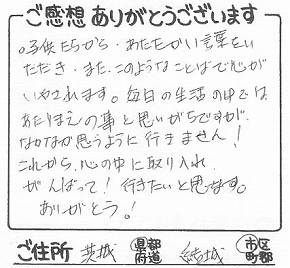 ご感想ありがとうございます
。子供たちから・あたたかい言葉をい
ただき・また、このようなことばで心が
いやされます。毎日の生活の中では
あたりまえの事と思いがちですが、
なかなか思うように行きません!
これから、心の中に取り入れ
がんばって!行きたいと思います。
ありがとう!
ご住所 茨城 都道府県 結城 市区町郡